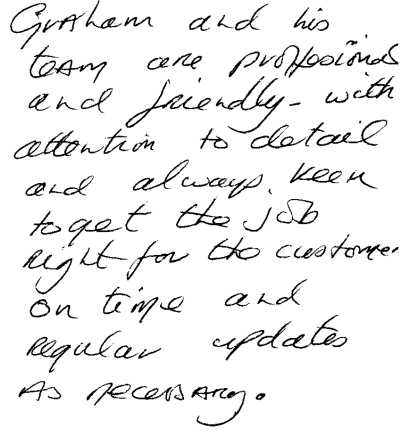 Graham and his
team are professional
and friendly - with
attention to detail
and always keen
to get the job
right for the customer
on time and
regular updates
As necessary.